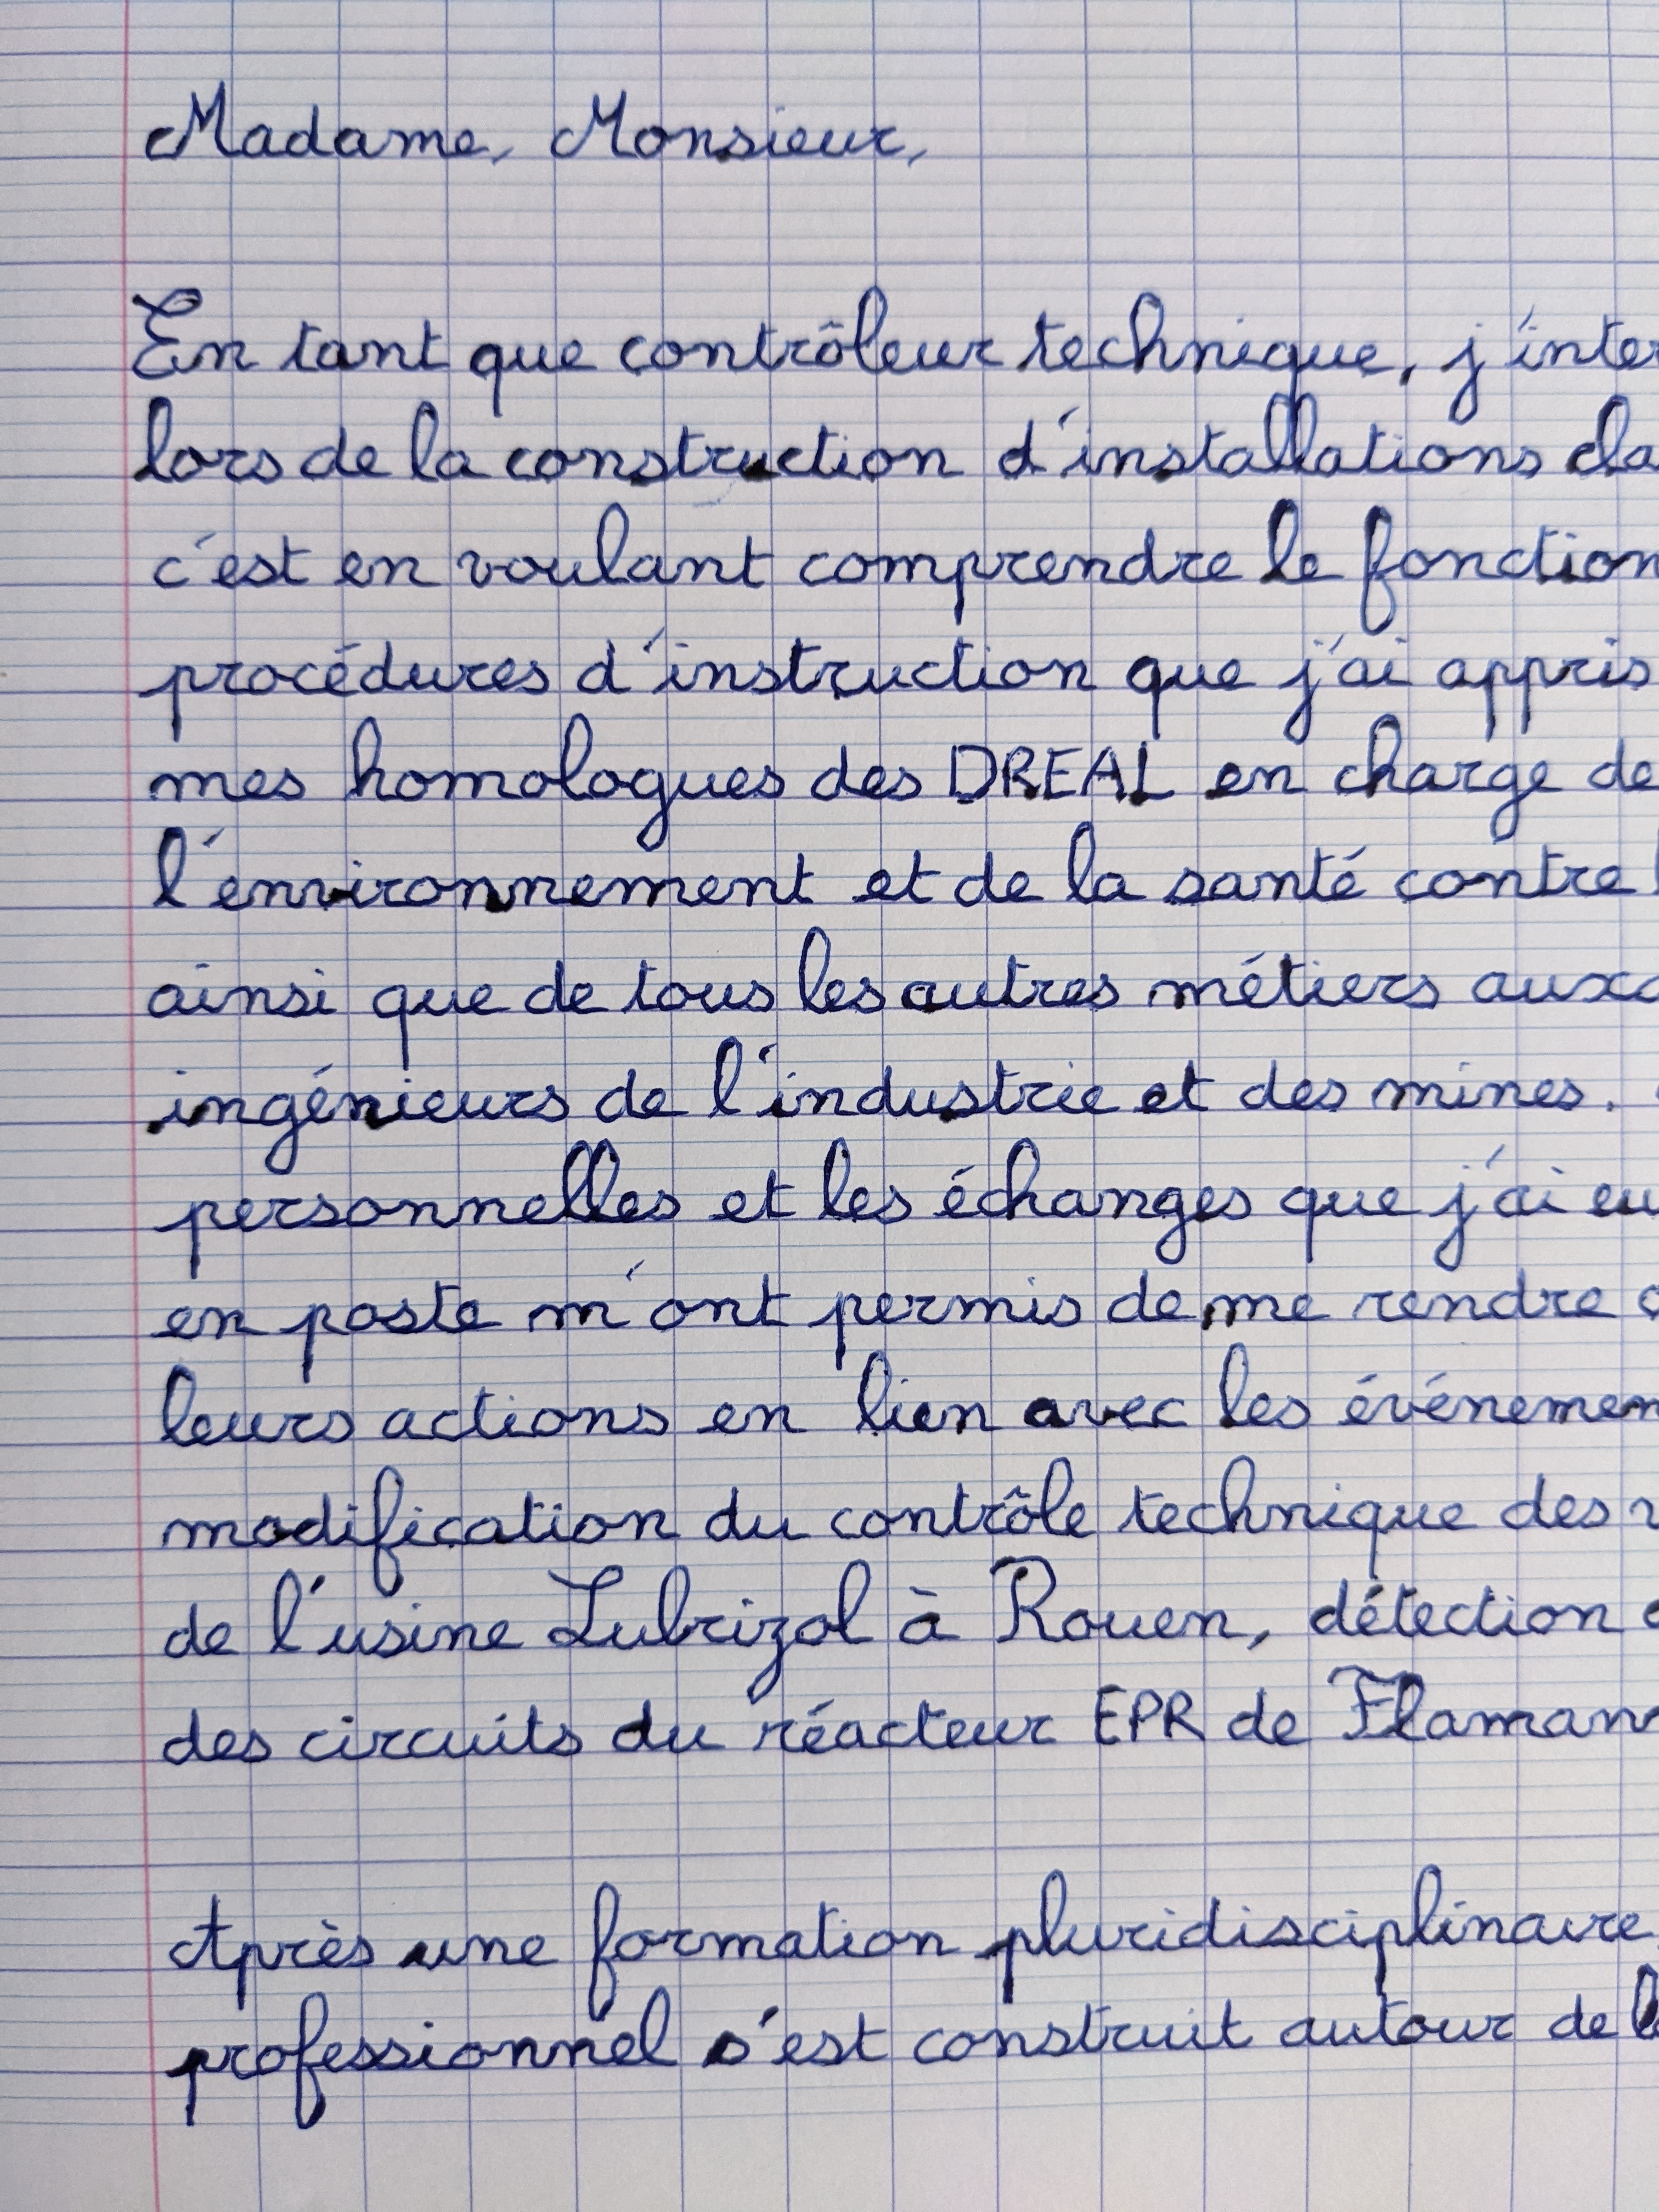 Madame, Monsieur,
En tant que contrôleur technique, j'inter
lors de la construction d'installations da
c'est en voulant comprendre le fonction
procédures d'instruction que j'ai appris
mes homologues des DREAL en charge de
l'environnement et de la santé contre l
ainsi que de tous les autres métiers aux
ingénieurs de l'industrie et des mines.
personnelles et les échanges que j'ai eu
en poste m'ont permis de me rendre
leurs actions en lien avec les événemen
modification du contrôle technique des v
de l'usine Lubrizol à Rouen, détection
des circuits du réacteur EPR de Flaman
Après une formation pluridisciplinaire,
professionnel s'est construit autour de l